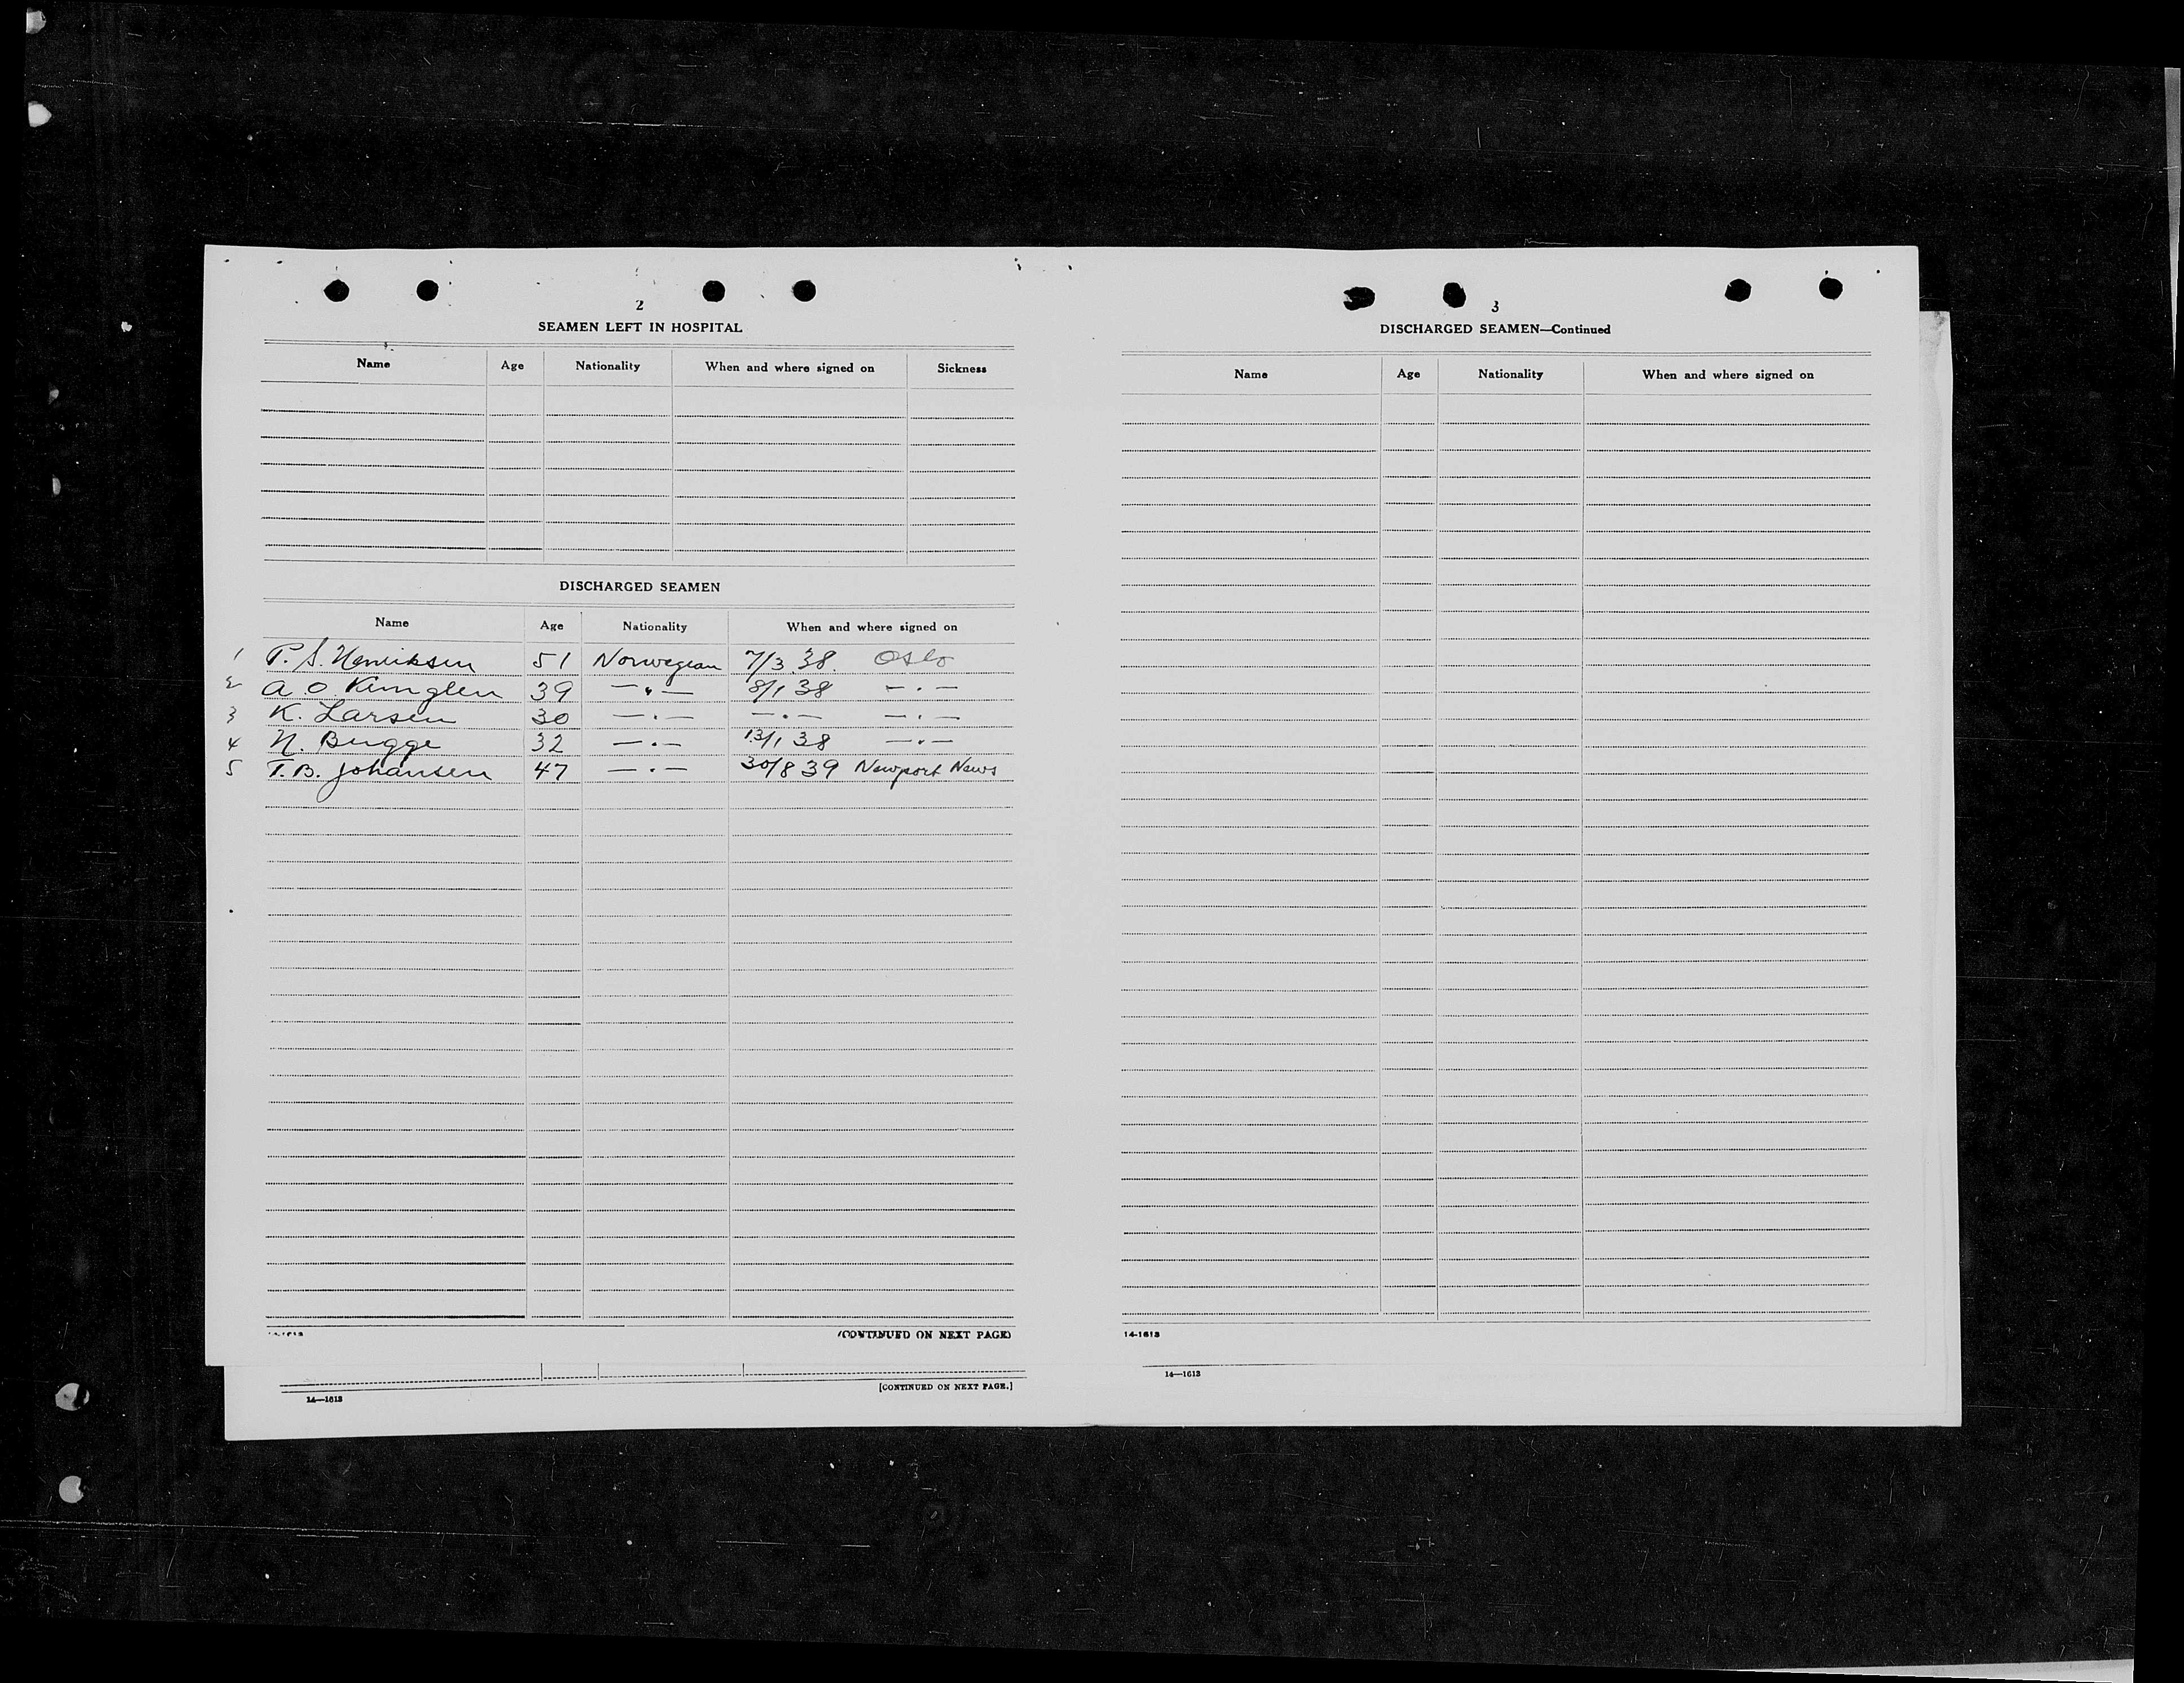 2
SEAMEN LEFT IN HOSPITAL
Name Age Nationality When and where signed on Sickness
DISCHARGED SEAMEN
Name Age Nationality When and where signed on
1 P. S. Henriksen 51 Norwegian 7/3 38. Oslo
2 A. O. 39 —„— 8/1 38 —.—
3 K. Larsen 30 —.— —.— —.—
4 N. Bugge 32 —.— 13/1 38 —.—
5 T. B. Johansen 47 —.— 30/8 39 Newport News
14-1613
(CONTINUED ON NEXT PAGE)
14—1613
[CONTINUED ON NEXT PAGE.]
3
DISCHARGED SEAMEN—Continued
Name Age Nationality When and where signed on
14-1613
14—1613